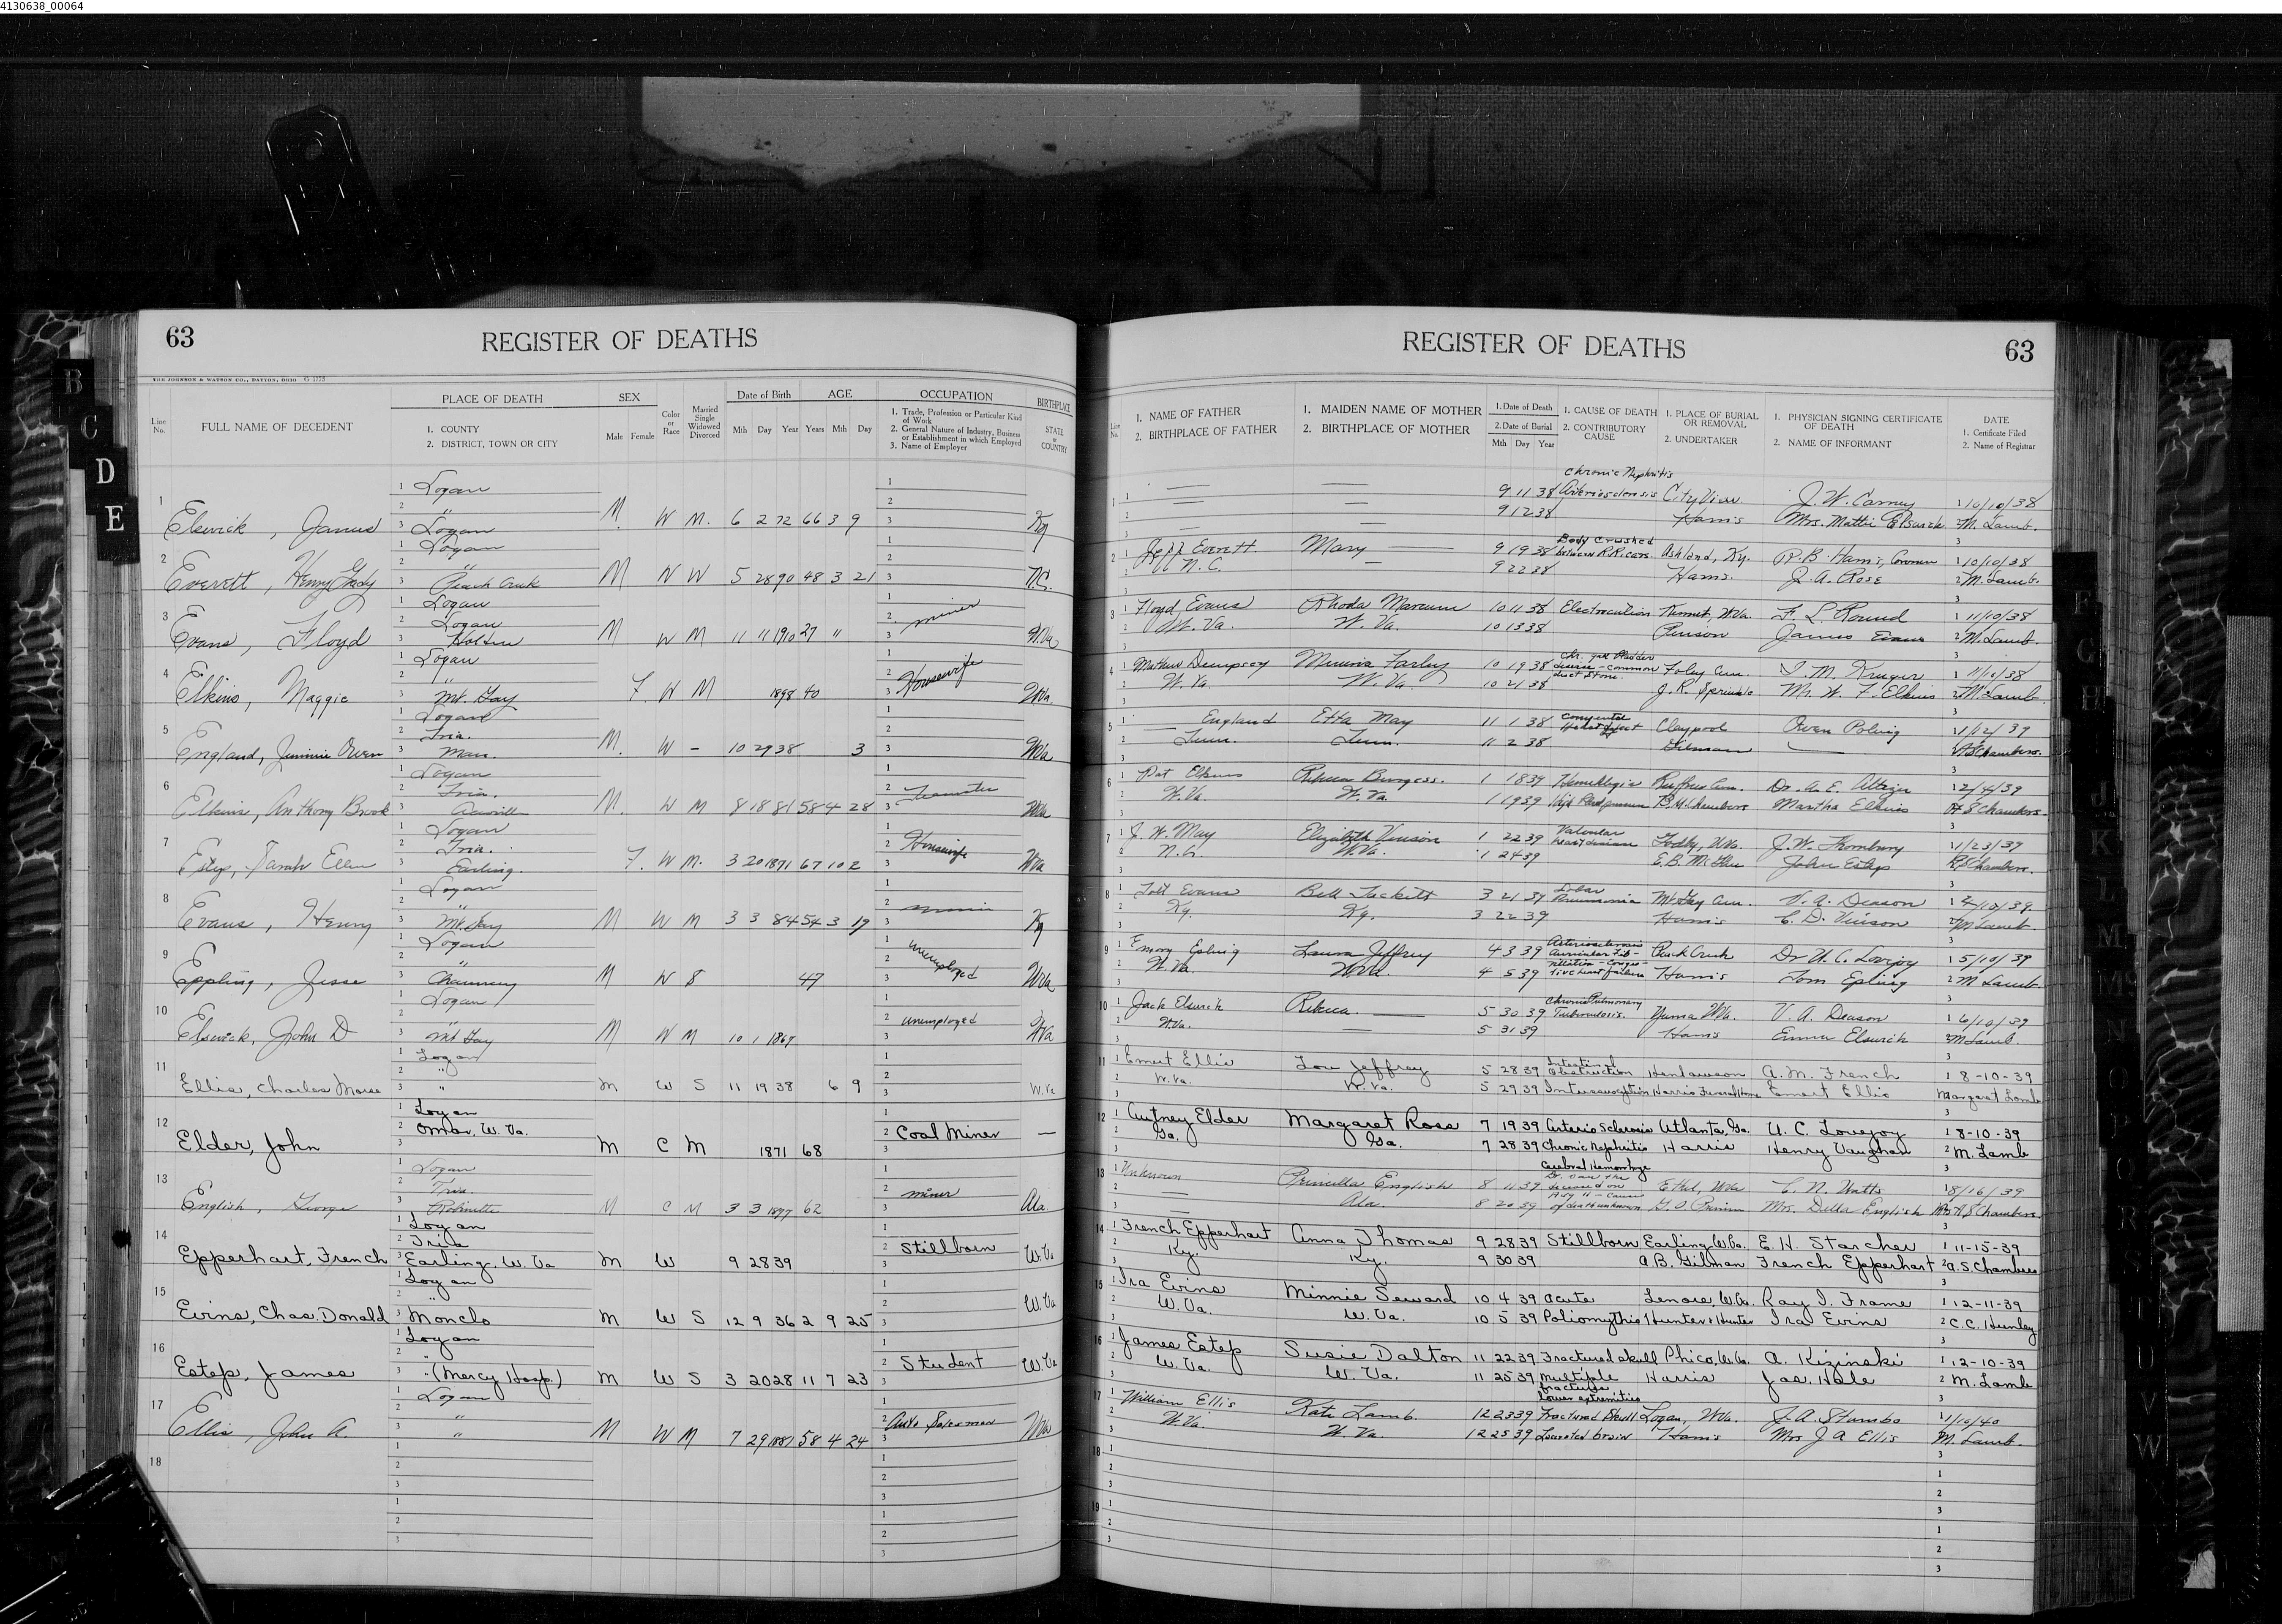 4130638_00064
63
REGISTER OF DEATHS
THE JOHNSON & WATSON CO., DAYTON, OHIO G 1775
Line No.
FULL NAME OF DECEDENT
PLACE OF DEATH
1. COUNTY
2. DISTRICT, TOWN OR CITY
SEX
Male Female
Color or Race
Married Single Widowed Divorced
Date of Birth
Mth Day Year
AGE
Years Mth Day
OCCUPATION
1. Trade, Profession or Particular Kind of Work
2. General Nature of Industry, Business or Establishment in which Employed
3. Name of Employer
BIRTHPLACE
STATE or COUNTRY
1 Elswick, James Logan " Logan M W M. 6 2 72 66 3 9 Ky
2 Everett, Henry Grady Logan " Peach Creek M W W 5 28 90 48 3 21 N.C.
3 Evans, Floyd Logan Logan Holden M W M 11 11 1910 27 " miner W.Va
4 Elkins, Maggie Logan " Mt. Gay F W M 1898 40 Housewife W.Va.
5 England, Jimmie Owen Logan Tria. Man. M. W - 10 29 38 3 W.Va
6 Elkins, Anthony Brook Logan Tria. M. W M 8 18 81 58 4 28 Teamster W.Va
7 Estep, Sarah Ellen Logan Tria. Earling. F. W M. 3 20 1871 67 10 2 Housewife W.Va
8 Evans, Henry Logan " Mt. Gay M W M 3 3 84 54 3 19 Ky
9 Eppling, Jesse Logan " Chauncey M W S 47 unemployed W.Va
10 Elswick, John D Logan " Mt Gay M W M 10 1 1867 unemployed W.Va
11 Ellis, Charles Logan " " M W S 11 19 38 6 9 W.Va
12 Elder, John Logan Omar, W. Va. M C M 1871 68 Coal Miner —
13 English, George Logan Tria. Robinette M C M 3 3 1877 62 miner Ala.
14 Epperhart, French Logan Tria Earling, W. Va M W 9 28 39 Stillborn W.Va
15 Evins, Chas. Donald Logan " Monclo M W S 12 9 36 2 9 25 W.Va
16 Estep, James Logan " " (Mercy Hosp.) M W S 3 20 28 11 7 23 Student W.Va
17 Ellis, John A. Logan " " M W M 7 29 1881 58 4 24 Auto Salesman W.Va
18
REGISTER OF DEATHS
63
Line No.
1. NAME OF FATHER
2. BIRTHPLACE OF FATHER
1. MAIDEN NAME OF MOTHER
2. BIRTHPLACE OF MOTHER
1. Date of Death
2. Date of Burial
Mth Day Year
1. CAUSE OF DEATH
2. CONTRIBUTORY CAUSE
1. PLACE OF BURIAL OR REMOVAL
2. UNDERTAKER
1. PHYSICIAN SIGNING CERTIFICATE OF DEATH
2. NAME OF INFORMANT
DATE
1. Certificate Filed
2. Name of Registrar
1 — — 9 11 38 Chronic Nephritis Arteriosclerosis City View J. W. Carney 10/10/38
— — 9 12 38 Harris Mrs. Mattie M. Lamb.
2 Jeff Everett Mary — 9 19 38 Body crushed between R.R. cars Ashland, Ky. R. B. Harris, Coroner 10/10/38
N. C. — 9 22 38 Harris. J. A. Rose M. Lamb.
3 Floyd Evans Rhoda Marcum 10 11 38 Electrocution Kermit, W.Va. F. L. Round 11/10/38
W. Va. W. Va. 10 13 38 James Evans M. Lamb
4 Mathew Dempsey Minerva Farley 10 19 38 Chr. gall bladder disease - common duct stone. Foley Cem. I. M. Kruger 11/10/38
W. Va. W. Va. 10 21 38 J. R. Sprinkle Mr. W. F. Elkins M. Lamb
5 — England Etta May 11 1 38 Congenital Heart defect Claypool Owen Poling 1/12/39
Tenn. Tenn. 11 2 38 Gilman — A S Chambers.
6 Pat Elkins Rebecca Burgess. 1 18 39 Hemiplegia Dr. A. E. 2/4/39
W.Va. W.Va. 1 19 39 High Blood pressure B. H. Chambers Martha Elkins A S Chambers.
7 J. W. May Elizabeth Vinson 1 22 39 Valvular heart disease Godby, W.Va. J. W. Thornbury 1/23/39
N.C. W.Va. 1 24 39 John Estep A S Chambers.
8 Evans Bell Tackett 3 21 39 Lobar Pneumonia Mt Gay Cem. V. A. Deason /10/39
Ky. Ky. 3 22 39 Harris C. D. Vinson M Lamb.
9 Emory Epling Laura Jeffrey 4 3 39 Arteriosclerosis Auricular Fibrillation - Congestive heart failure Peach Creek Dr U. C. Lovejoy 5/10/39
W. Va. W.Va. 4 5 39 Harris Tom Epling M Lamb.
10 Jack Elswick Rebecca. — 5 30 39 Chronic Pulmonary Tuberculosis. Yuma W.Va. V. A. Deason 6/10/39
W.Va. — 5 31 39 Harris Emma Elswick M Lamb.
11 Emert Ellis Lou Jeffrey 5 28 39 Intestinal Obstruction Henlawson A. M. French 8-10-39
W.Va. W.Va. 5 29 39 Intussusception Harris Funeral Home Emert Ellis Margaret Lamb
12 Autney Elder Margaret Ross 7 19 39 Arterio Sclerosis Atlanta, Ga. U. C. Lovejoy 8-10-39
Ga. Ga. 7 28 39 Chronic Nephritis Harris Henry Vaughan M. Lamb
13 Unknown Priscilla English 8 11 39 Cerebral Hemorrhage Dr. saw the deceased on Aug 11 - cause of death unknown Ethel, W.Va C. N. Watts 8/16/39
— Ala. 8 20 39 Mrs. Della English Mrs A S Chambers.
14 French Epperhart Anna Thomas 9 28 39 Stillborn Earling, W.Va. E. H. Starcher 11-15-39
Ky. Ky. 9 30 39 A.B. Gilman French Epperhart A. S. Chambers
15 Ira Evins Minnie Seward 10 4 39 Acute Lenore, W.Va. Ray I. Frame 12-11-39
W.Va. W.Va. 10 5 39 Poliomythis Hunter & Hunter Ira Evins C.C. Hunley
16 James Estep Susie Dalton 11 22 39 Fractured skull Phico, W.Va. A. Kizinski 12-10-39
W. Va. W. Va. 11 25 39 Multiple fractures lower extremities Harris Jas. Hale M. Lamb
17 William Ellis Kate Lamb. 12 23 39 Fractured Skull Logan, W.Va. J. A. Stumbo 1/10/40
W.Va. W. Va. 12 25 39 Lacerated brain Harris Mrs J A Ellis M. Lamb.
18
19
B
C
D
E